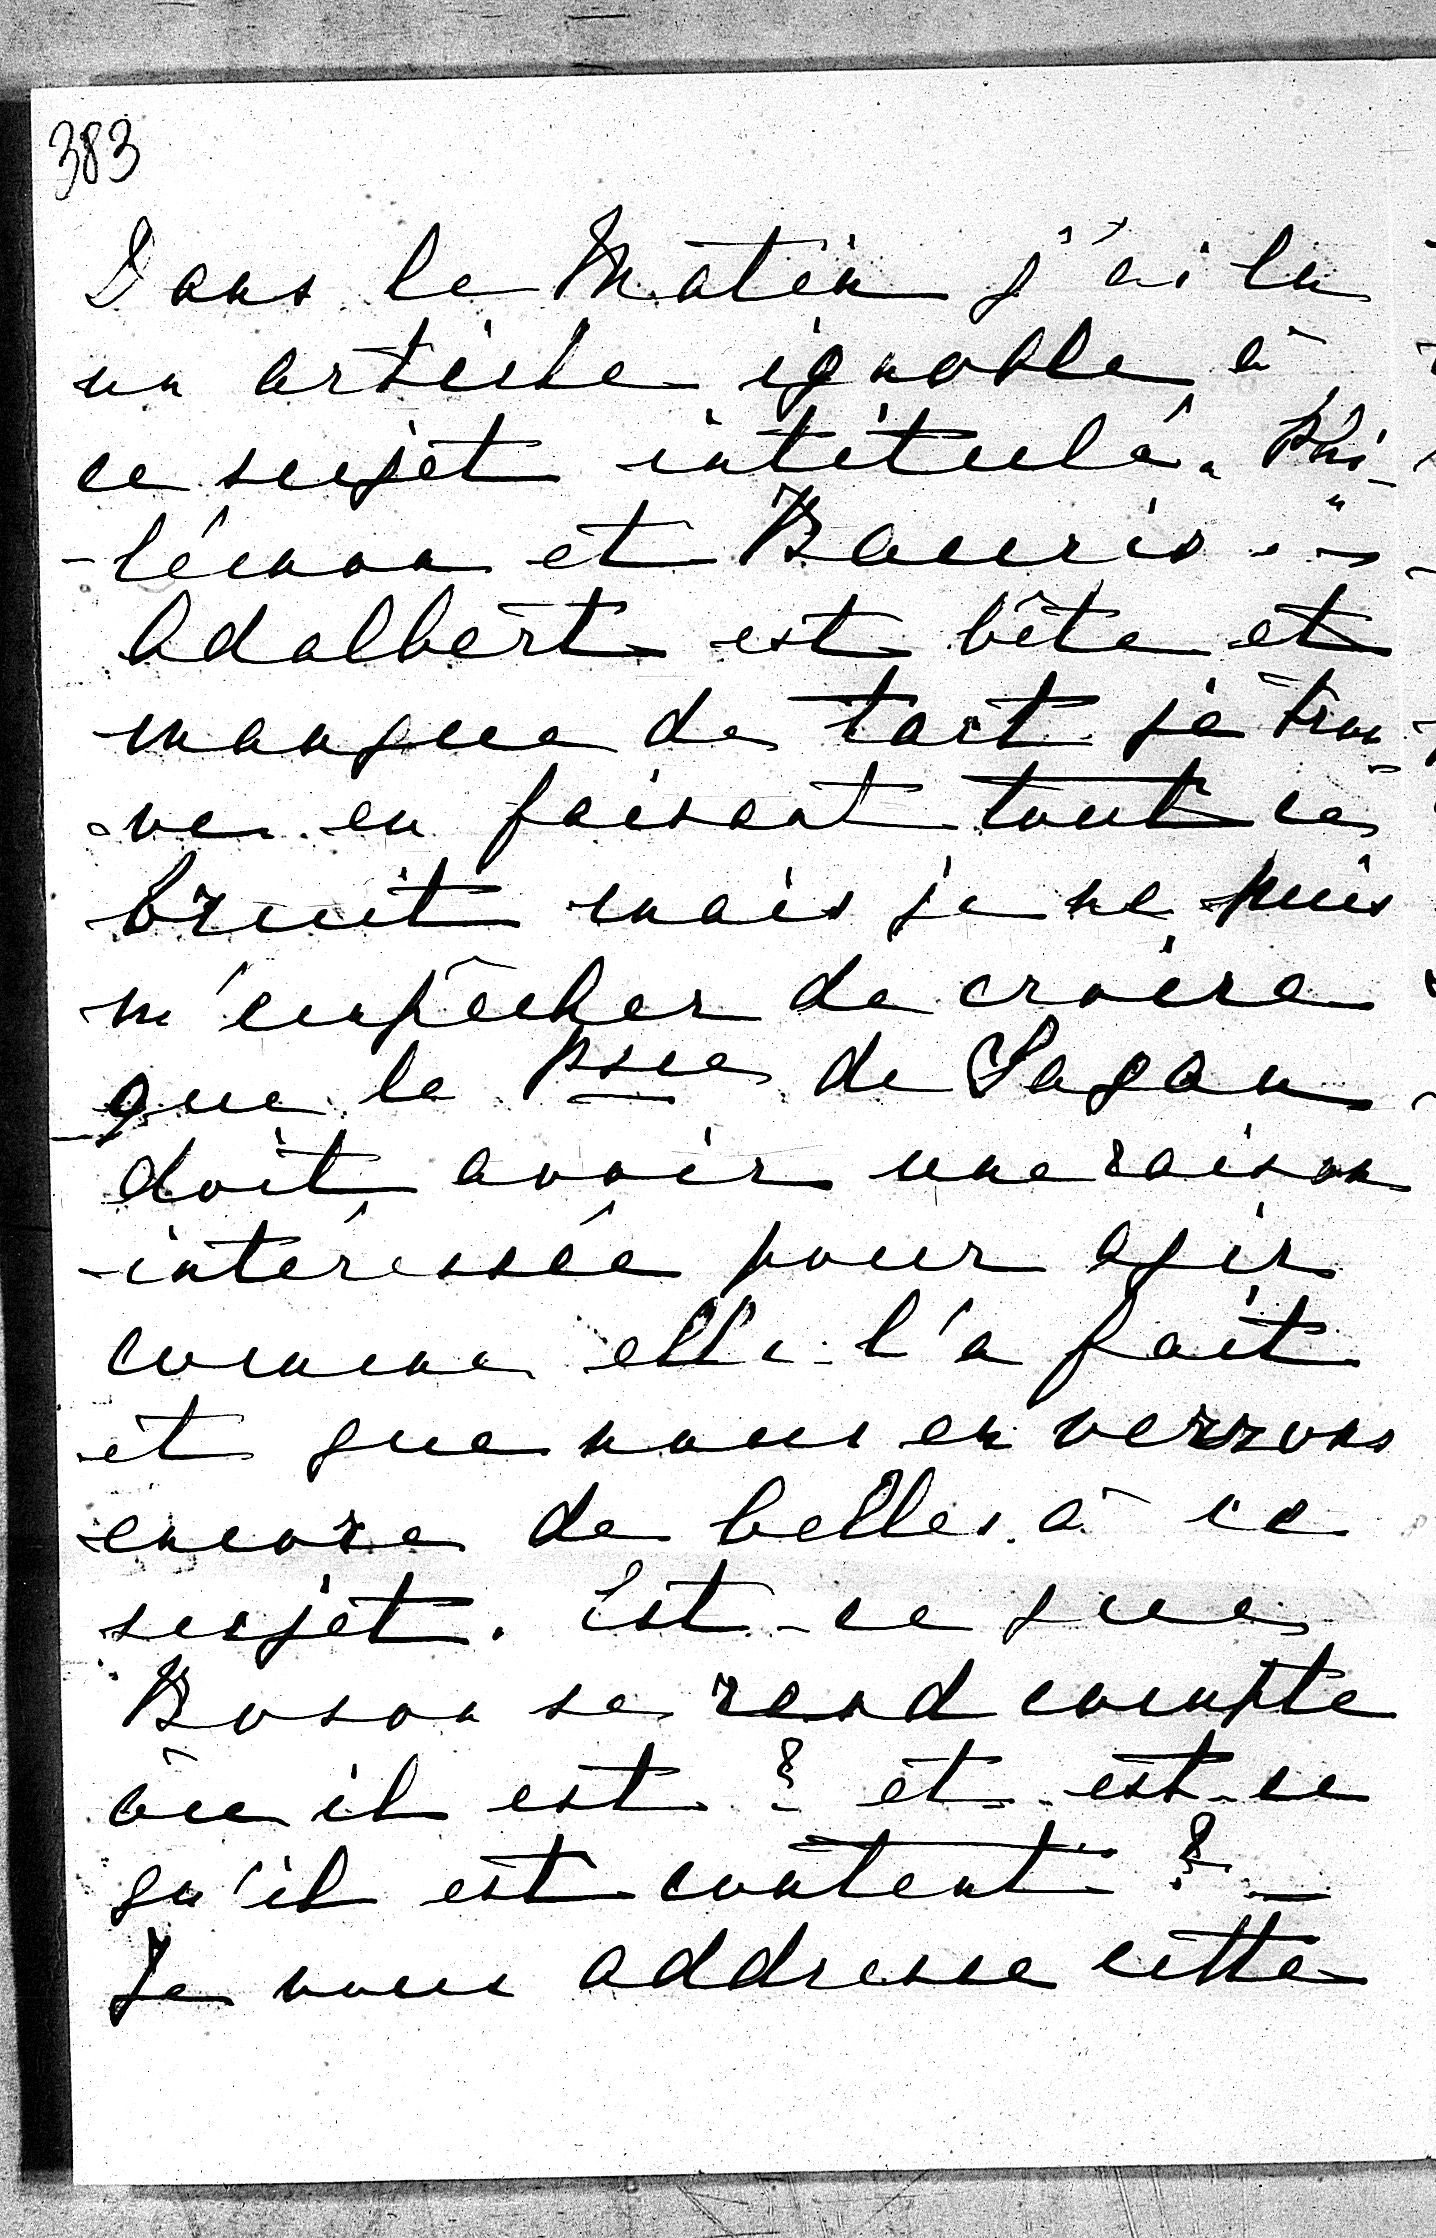 383
Dans le Matin j'ai lu
un article ignoble à
ce sujet intitulé "Phi-
-lémon et Baucis".
Adalbert est bête et
manque de tact je trou-
-ve en faisant tout ce
bruit mais je ne puis
m'empêcher de croire
que la Psse de Sagan
doit avoir une raison
intéressée pour agir
comme elle l'a fait
et que nous en verrons
encore de belles à ce
sujet. Est-ce que
Boson se rend compte
où il est ? et est-ce
qu'il est content ? —
Je vous addresse cette